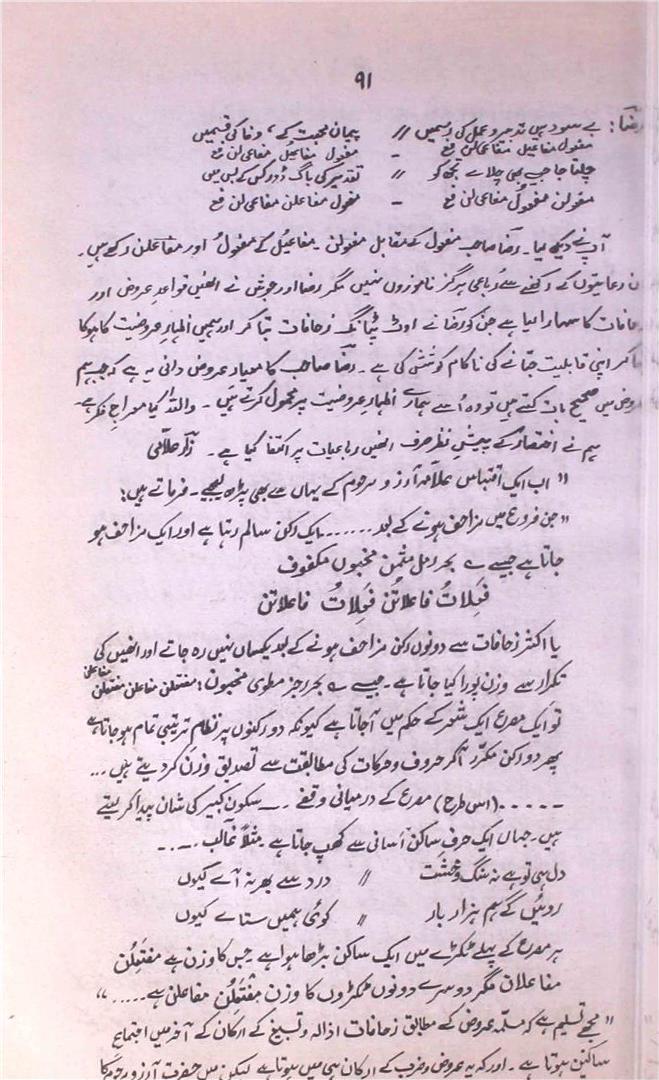 ۹۱
رضا: بے سود ہیں تدبیر و عمل کی رسمیں // پیمان محبت کے، وفا کی قسمیں
مفعول مفاعیل مفاعی لن فع - مفعول مفاعیل مفاعی لن فع
چلتا جا جب بھی چلاے تجھ کو // تقدیر کی باگ ڈور کس کے بس میں
مفولن مفعول مفاعی لن فع - مفعول مفاعلن مفاعی لن فع
آپ نے دیکھ لیا۔ رضا صاحب مفعول کے مقابل مفولن۔ مفاعیل کے مفعول اور مفاعلن رکھے ہیں۔
ان رعایتوں کے رکھنے سے رباعی ہرگز ناموزوں نہیں مگر رضا اور جوش نے انھیں قواعد عروض اور
زحافات کا سہارا لیا ہے جن کو رضا نے اوٹ پٹانگ زحافات بتا کر اور ہمیں اظہار عروضیت کا ہوکا
بتا کر اپنی قابلیت جتانے کی ناکام کوشش کی ہے۔ رضا صاحب کا معیار عروض دانی یہ ہے کہ جب ہم
عروض میں صحیح بات کہتے ہیں تو وہ اُسے ہمارے اظہار عروضیت پر محمول کرتے ہیں۔ واللہ کیا معراج فکر ہے۔
ہم نے اختصار کے پیش نظر صرف انھیں رباعیات پر اکتفا کیا ہے۔ زار علامی
" اب ایک اقتباس علامہ آرزو مرحوم کے یہاں سے بھی پڑھ لیجیے۔ فرماتے ہیں:
" جن فروع میں مزاحف ہونے کے بعد ...... ایک رکن سالم رہتا ہے اور ایک مزاحف ہو
جاتا ہے جیسے ے بحر رمل مثمن مخبوں مکفوف
فَعِلاتُ فاعلاتُن فَعِلاتُ فاعلاتن
یا اکثر زحافات سے دونوں رکن مزاحف ہونے کے بعد یکساں نہیں رہ جاتے اور انھیں کی
تکرار سے وزن پورا کیا جاتا ہے۔ جیسے ے بحر رجز مطوی مخبون: مفتعلن مفاعلن مفتعلن مفاعلن
تو ایک مصرع ایک شعر کے حکم میں آجاتا ہے کیونکہ دو رکنوں پر نظام ترتیبی تمام ہو جاتا ہے
پھر دو رکن مکرّر آکر حروف و حرکات کی مطابقت سے تصدیق وزن کر دیتے ہیں ...
..... (اس طرح) مصرع کے درمیانی وقفے ۔۔ سکون کبیر کی شان پیدا کر لیتے
ہیں۔ جہاں ایک حرف ساکن آسانی سے کھپ جاتا ہے مثلاً غالب ۔۔۔
دل ہی تو ہے نہ سنگ و خشت // درد سے بھر نہ آے کیوں
روئیں گے ہم ہزار بار // کوئی ہمیں ستاے کیوں
ہر مصرع کے پہلے ٹکڑے میں ایک ساکن بڑھا ہوا ہے جس کا وزن ہے مفتَعِلُن
مفاعلان مگر دوسرے دونوں ٹکڑوں کا وزن مفتَعِلُن مفاعلن ہے ..... "
" مجھے تسلیم ہے کہ مسلمہ عروض کے مطابق زحافات اذالہ و تسبیغ کے ارکان کے آخر میں اجتماع
ساکنین ہوتا ہے۔ اور کہ یہ عروض و ضرب کے ارکان ہی میں ہوتا ہے لیکن میں حضرت آرزو مرحوم کا